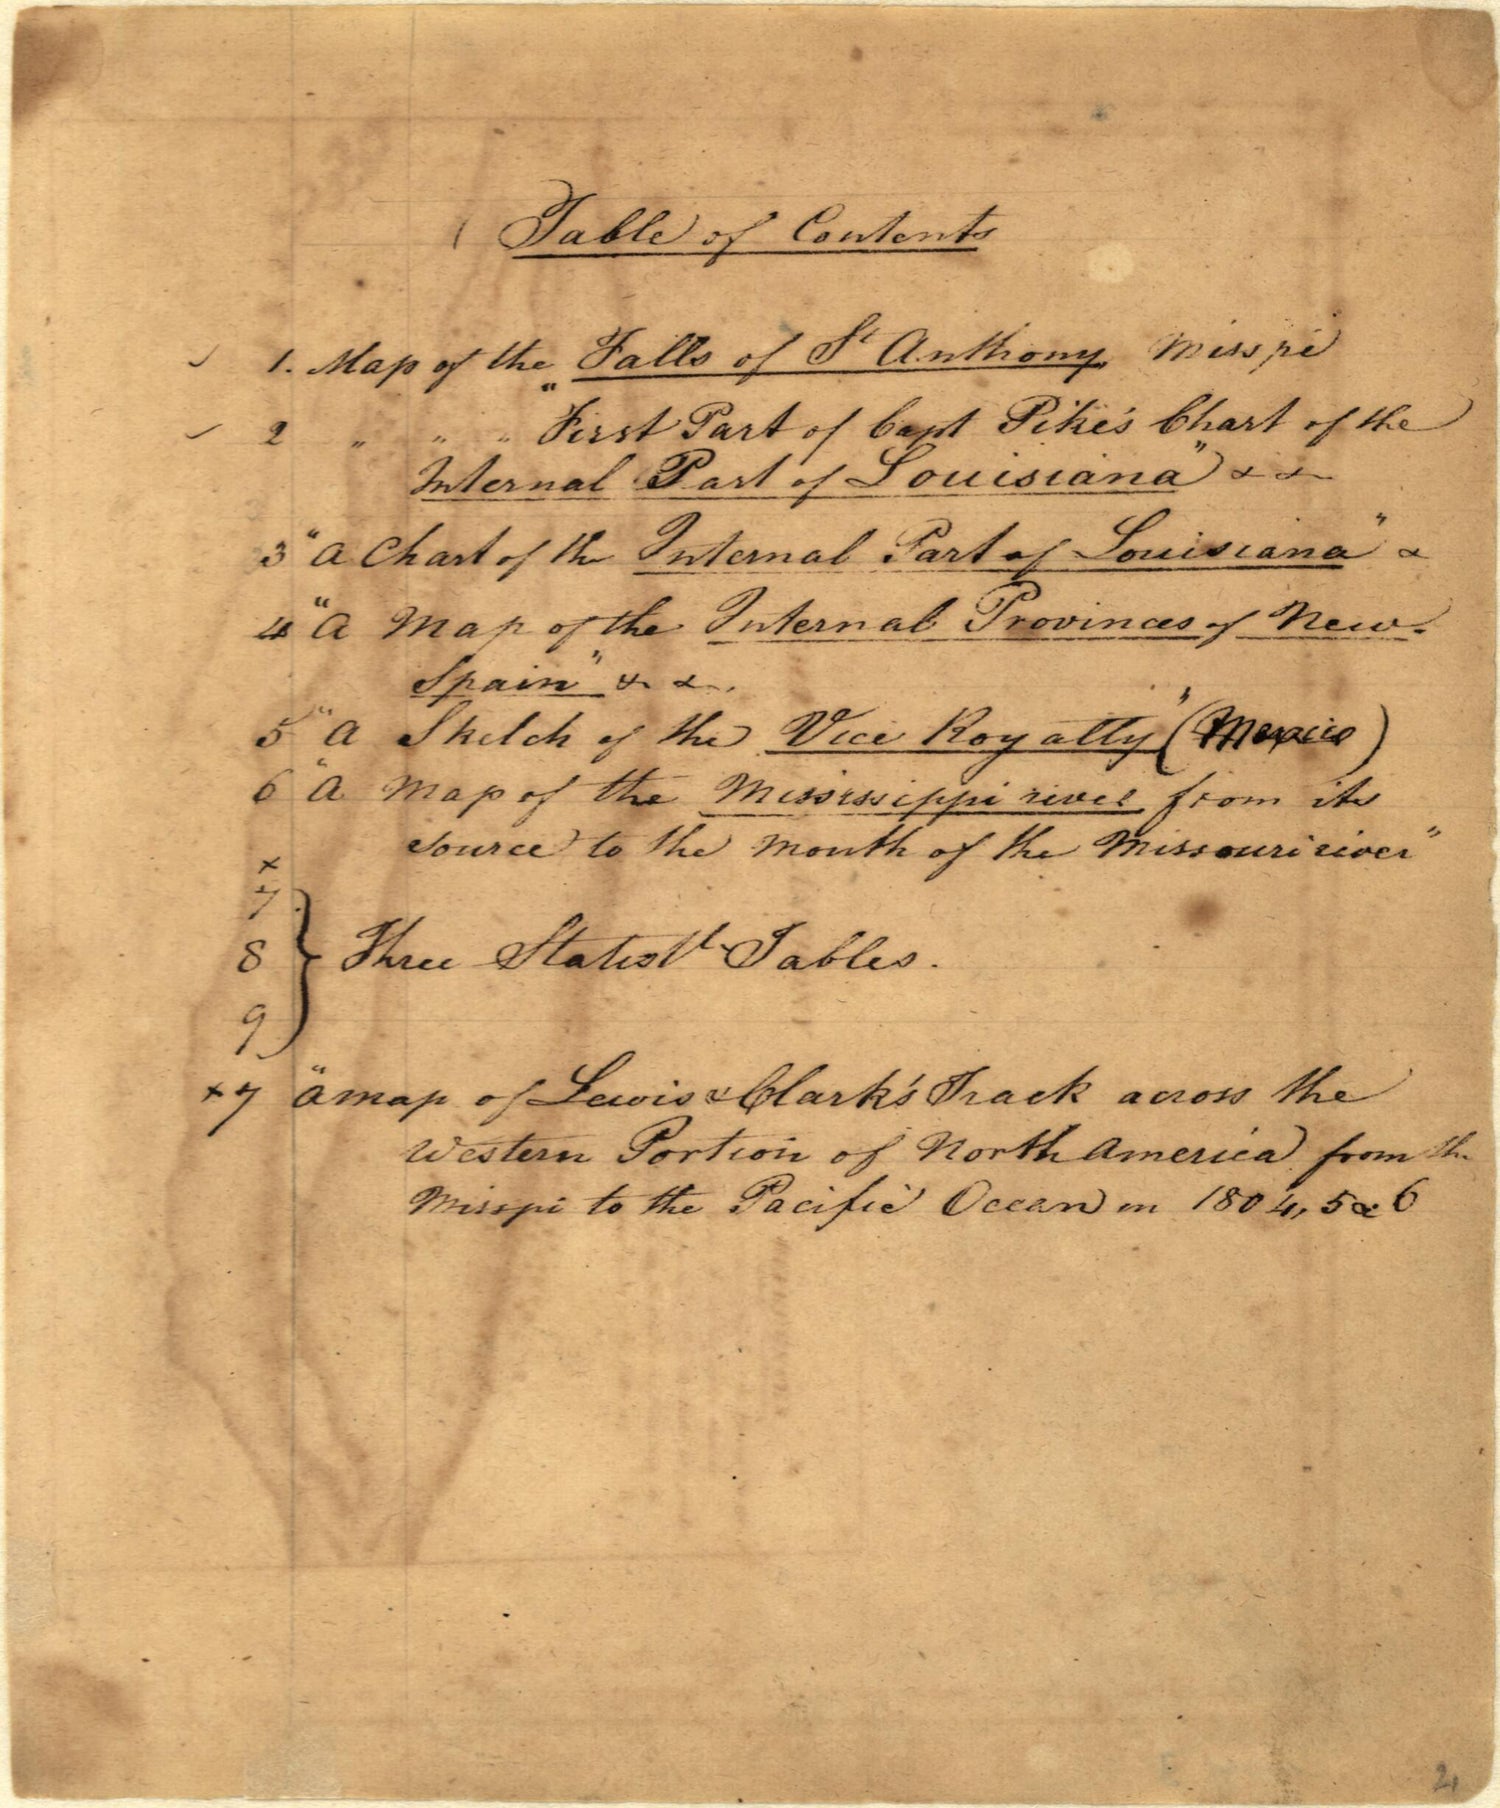 Table of Contents
✓ 1. Map of the Falls of St Anthony, Misspi
✓ 2 " " " "First Part of Capt Pike's Chart of the
Internal Part of Louisiana" & &
3 "A Chart of the Internal Part of Louisiana" &
4 "A Map of the Internal Provinces of New-
Spain" & &.
5 "A Sketch of the Vice Royalty" (Mexico)
6 "A Map of the Mississippi river from its
source to the mouth of the Missouri river"
x
7
8 } Three Statistl Tables.
9
x7 "A map of Lewis & Clark's Track across the
Western Portion of North America from the
Misspi to the Pacific Ocean in 1804, 5 & 6
2